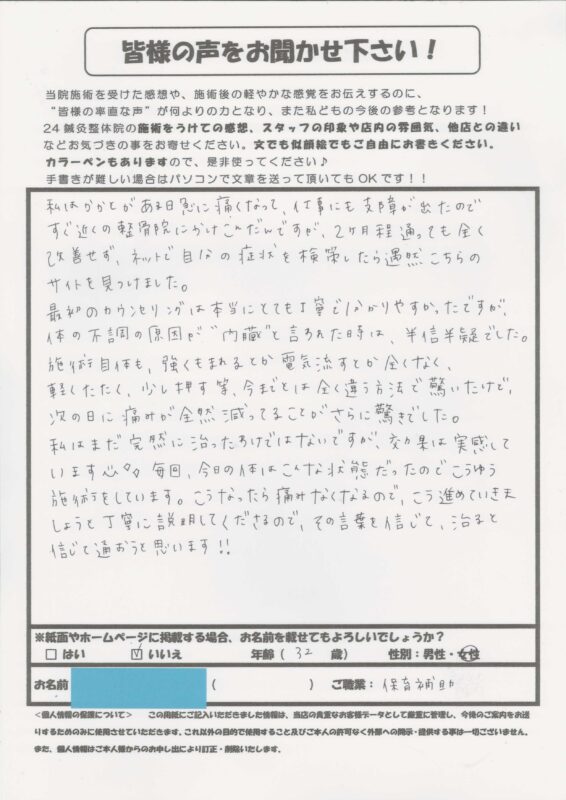 皆様の声をお聞かせ下さい!
当院施術を受けた感想や、施術後の軽やかな感覚をお伝えするのに、
“皆様の率直な声”が何よりの力となり、また私どもの今後の参考となります!
24鍼灸整体院の施術をうけての感想、スタッフの印象や店内の雰囲気、他店との違い
などお気づきの事をお寄せください。文でも似顔絵でもご自由にお書きください。
カラーペンもありますので、是非使ってください♪
手書きが難しい場合はパソコンで文章を送って頂いてもOKです!!
私はかかとがある日急に痛くなって、仕事にも支障が出たので
すぐ近くの整骨院にかけこんだんですが、2ヶ月程通っても全く
改善せず、ネットで自分の症状を検索したら偶然こちらの
サイトを見つけました。
最初のカウンセリングは本当にとても丁寧で分かりやすかったですが、
体の不調の原因が“内臓”と言われた時は、半信半疑でした。
施術自体も、強くもまれるとか電気流すとか全くなく、
軽くたたく、少し押す等、今までとは全く違う方法で驚いたけど、
次の日に痛みが全然減ってることがさらに驚きでした。
私はまだ完全に治ったわけではないですが、効果は実感して
います 毎回、今日の体はこんな状態だったのでこうゆう
施術をしています。こうなったら痛みなくなるので、こう進めていきま
しょうと丁寧に説明してくださるので、その言葉を信じて、治ると
信じて通おうと思います!!
※紙面やホームページに掲載する場合、お名前を載せてもよろしいでしょうか?
□はい ☑いいえ 年齢( 32 歳) 性別:男性・女性
お名前 ( ) ご職業: 保育補助
<個人情報の保護について> この用紙にご記入いただきました情報は、当店の貴重なお客様データとして厳重に管理し、今後のご案内をお送
りするためのみに使用させていただきます。これ以外の目的で使用すること及びご本人の許可なく外部への開示・提供する事は一切ございません。
また、個人情報はご本人様からのお申し出により訂正・削除いたします。